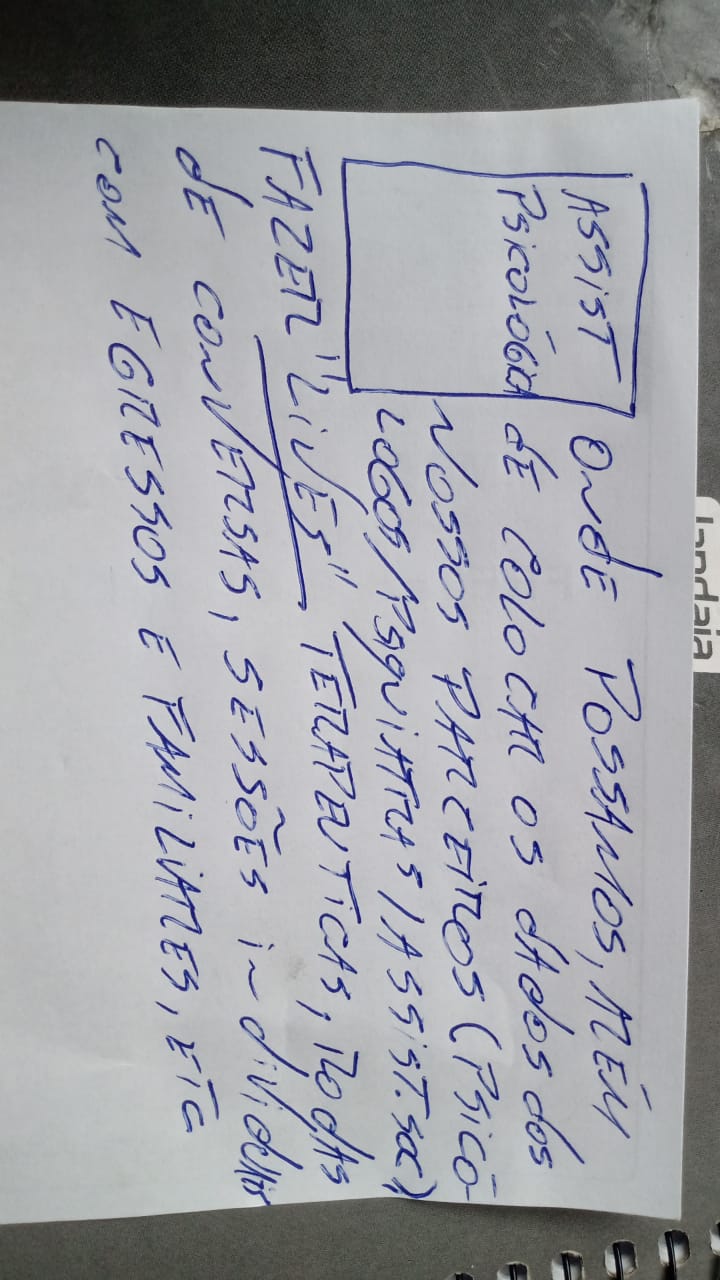 ASSIST
PSICOLÓGICA
ONDE POSSAMOS, ALÉM
DE COLOCAR OS DADOS DOS
NOSSOS PARCEIROS (PSICÓ-
LOGOS/PSQUIATRAS/ASSIST.SOC)
FAZER "LIVES" TERAPEUTICAS, RODAS
DE CONVERSAS, SESSÕES INDIVIDUAIS
COM EGRESSOS E FAMILIARES, ETC
Jandaia